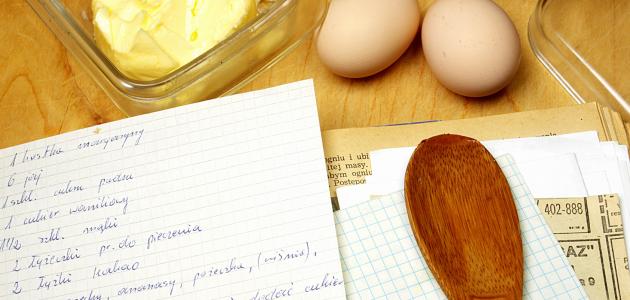 1 kostka margaryny
6 jaj
1 szkl. cukru pudru
1 cukier waniliowy
1 1/2 szkl. mąki
2 łyżeczki pr. do pieczenia
2 łyżki kakao
ananasy, porzeczka, (wiśnia),
dodać cukier
ogniu i ubi
itej masy.
bym ogniu
Postępo
402-888
AZ"